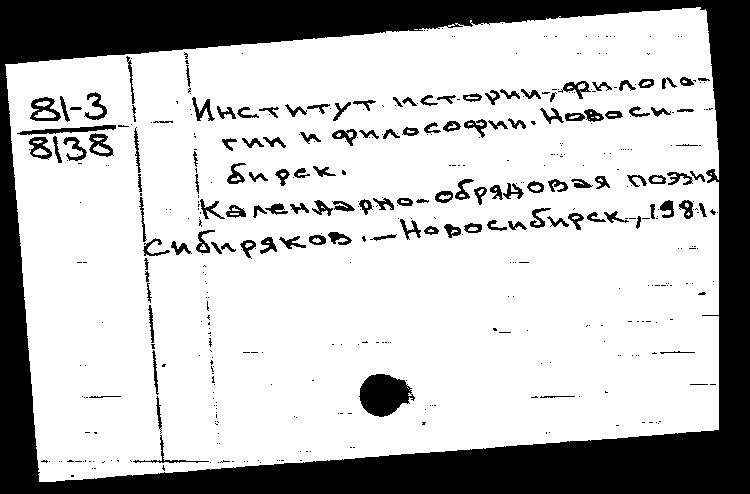 81-3
8138
Институт истории, филоло-
гии и философии. Новоси-
бирск.
Календарно-обрядовая поэзия
сибиряков. — Новосибирск, 1981.